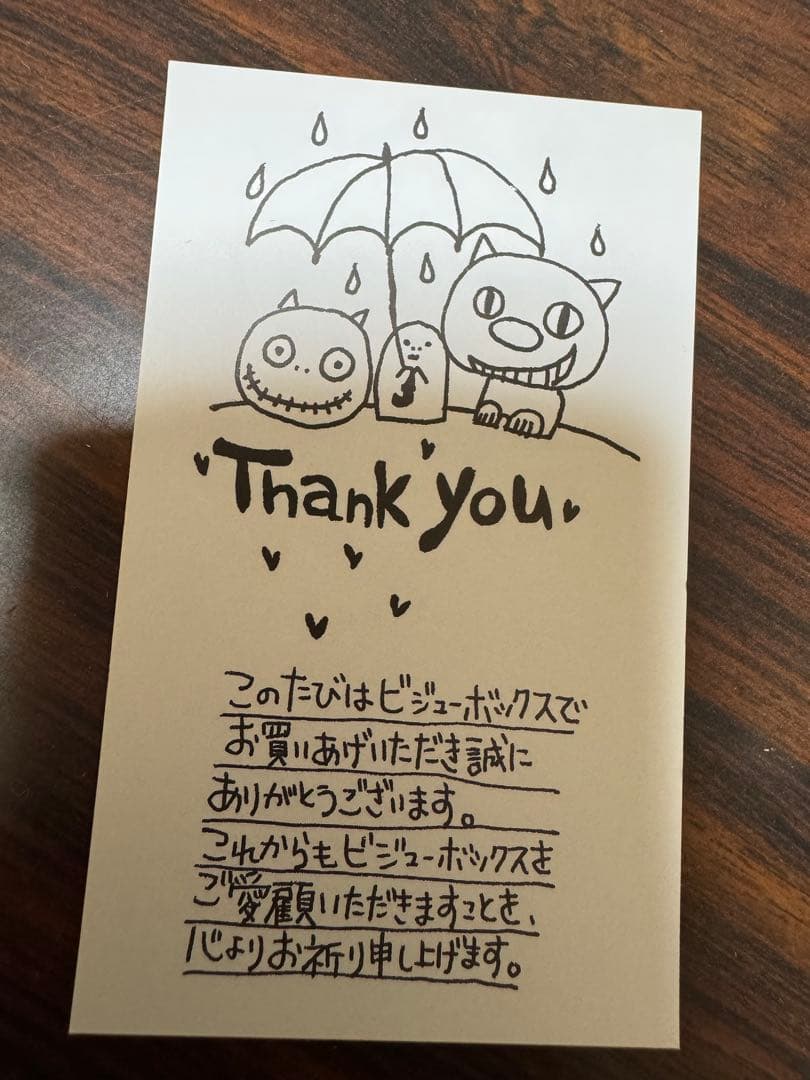 Thank you
このたびはビジューボックスで
お買いあげいただき誠に
ありがとうございます。
これからもビジューボックスを
ご愛顧いただきますことを、
心よりお祈り申し上げます。